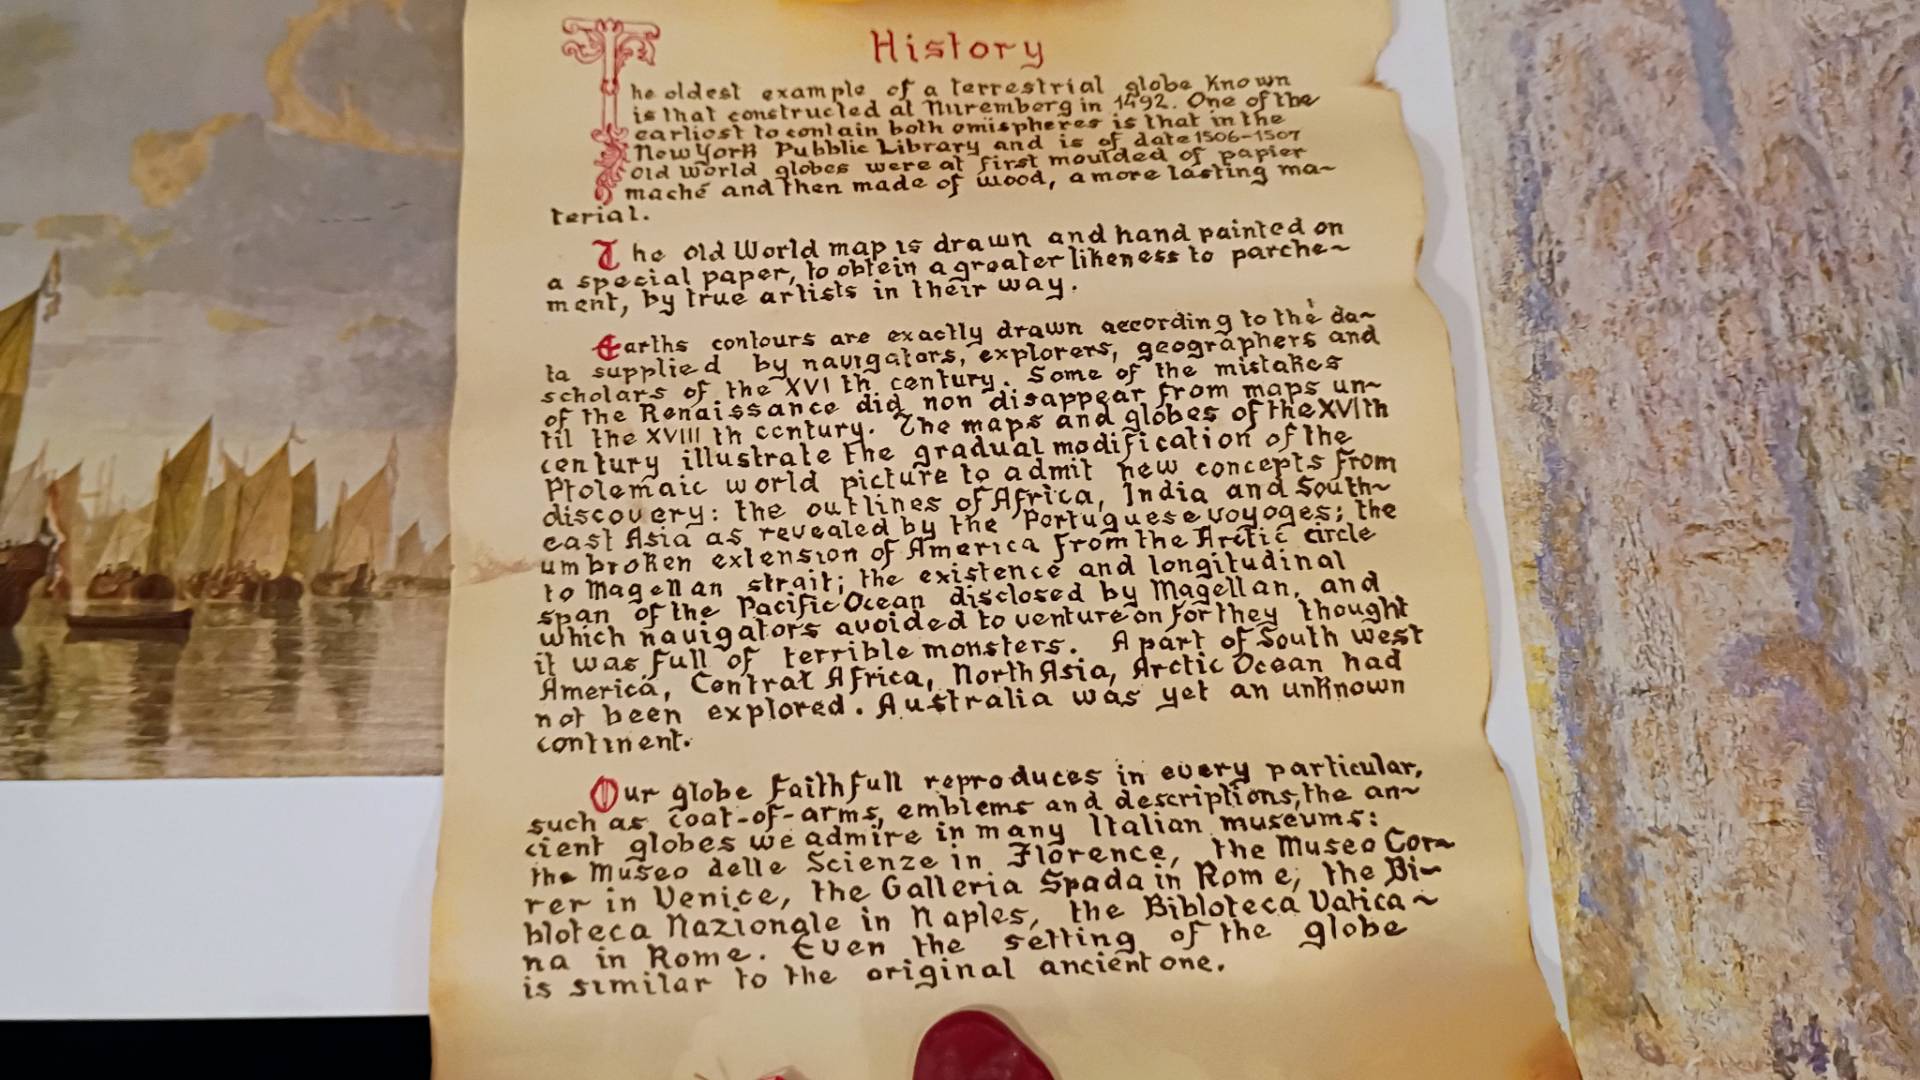 History
The oldest example of a terrestrial globe known
is that constructed at Nuremborg in 1492. One of the
earliest to contain both omispheres is that in the
New York Pubblic Library and is of date 1506-1507
old world globes were at first moulded of papier
maché and then made of wood, a more lasting ma~
terial.
The old World map is drawn and hand painted on
a special paper, to obtein a greater likeness to parche~
ment, by true artists in their way.
Earths contours are exactly drawn according to the da~
ta supplied by navigators, explorers, geographers and
scholars of the XVI th century. Some of the mistakes
of the Renaissance did non disappear from maps un~
til the XVIII th century. The maps and globes of the XVIth
century illustrate the gradual modification of the
Ptolemaic world picture to admit new concepts from
discovery: the outlines of Africa, India and South~
east Asia as revealed by the Portuguese voyoges; the
umbroken extension of America from the Arctic circle
to Magellan strait; the existence and longitudinal
span of the Pacific Ocean disclosed by Magellan, and
which navigators avoided to venture on for they thought
it was full of terrible monsters. A part of South west
America, Central Africa, North Asia, Arctic Ocean had
not been explored. Australia was yet an unknown
continent.
Our globe faithfull reproduces in every particular,
such as coat-of-arms, emblems and descriptions, the an~
cient globes we admire in many Italian museums:
the Museo delle Scienze in Florence, the Museo Cor~
rer in Venice, the Galleria Spada in Rome, the Bi~
bloteca Nazionale in Naples, the Bibloteca Vatica~
na in Rome. Even the setting of the globe
is similar to the original ancient one.